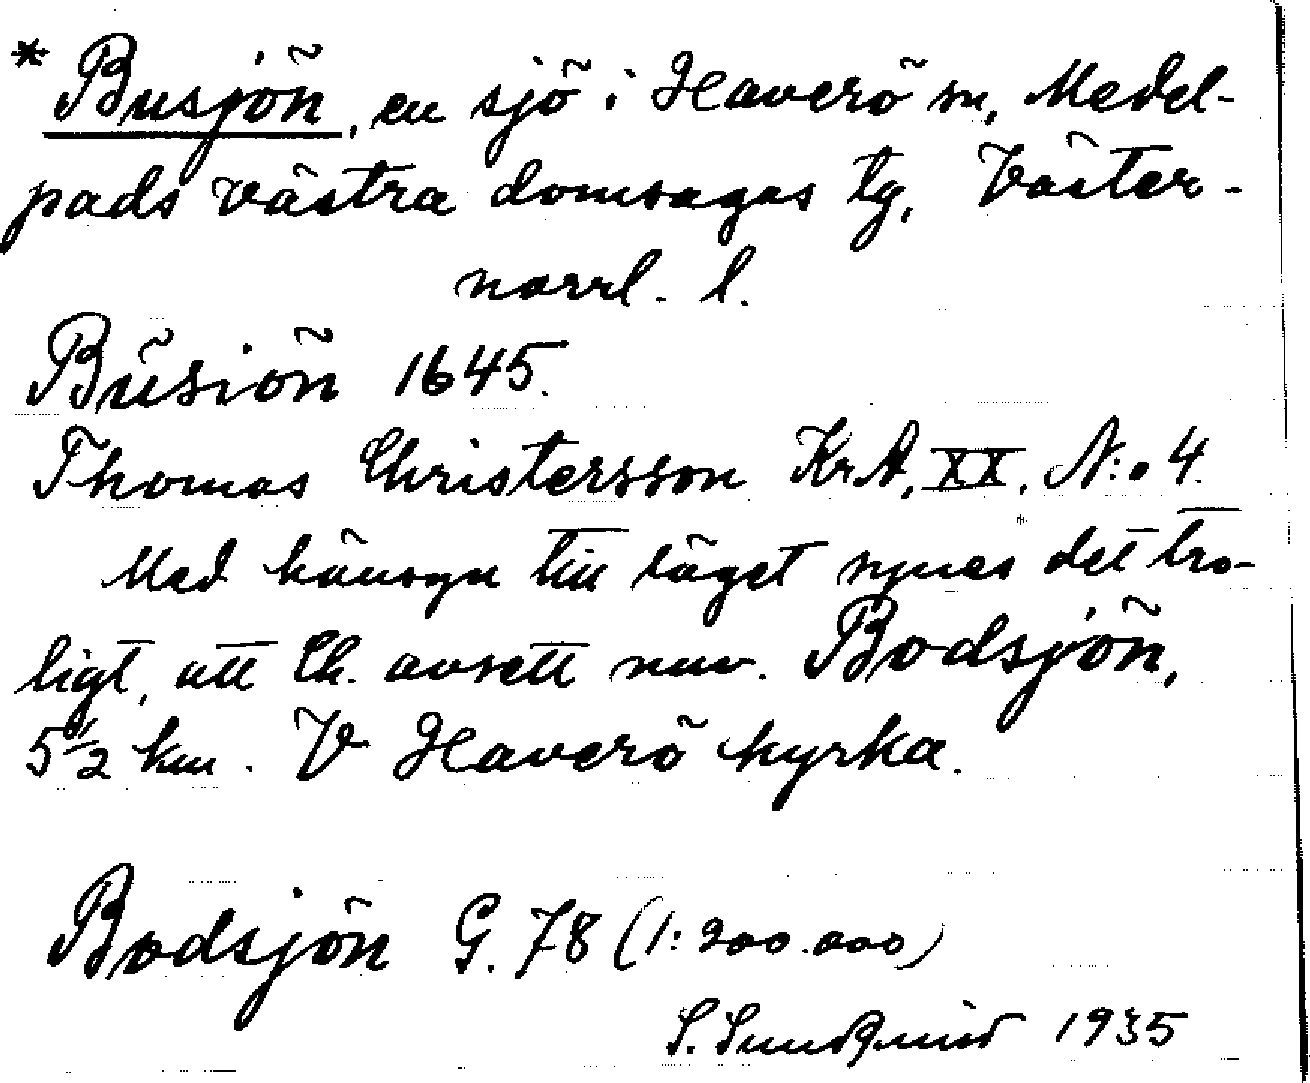 * Busjön, en sjö i Haverö sn, Medel-
pads västra domsagas tg, Väster-
norrl. l.
Bŭsiön 1645.
Thomas Christersson KrA, XX, N:o 4.
Med hänsyn till läget synes det tro-
ligt, att Ch. avsett nuv. Bodsjön,
5 1/2 km. V Haverö kyrka.
Bodsjön G. 78 (1:200.000)
S. Sundquist 1935